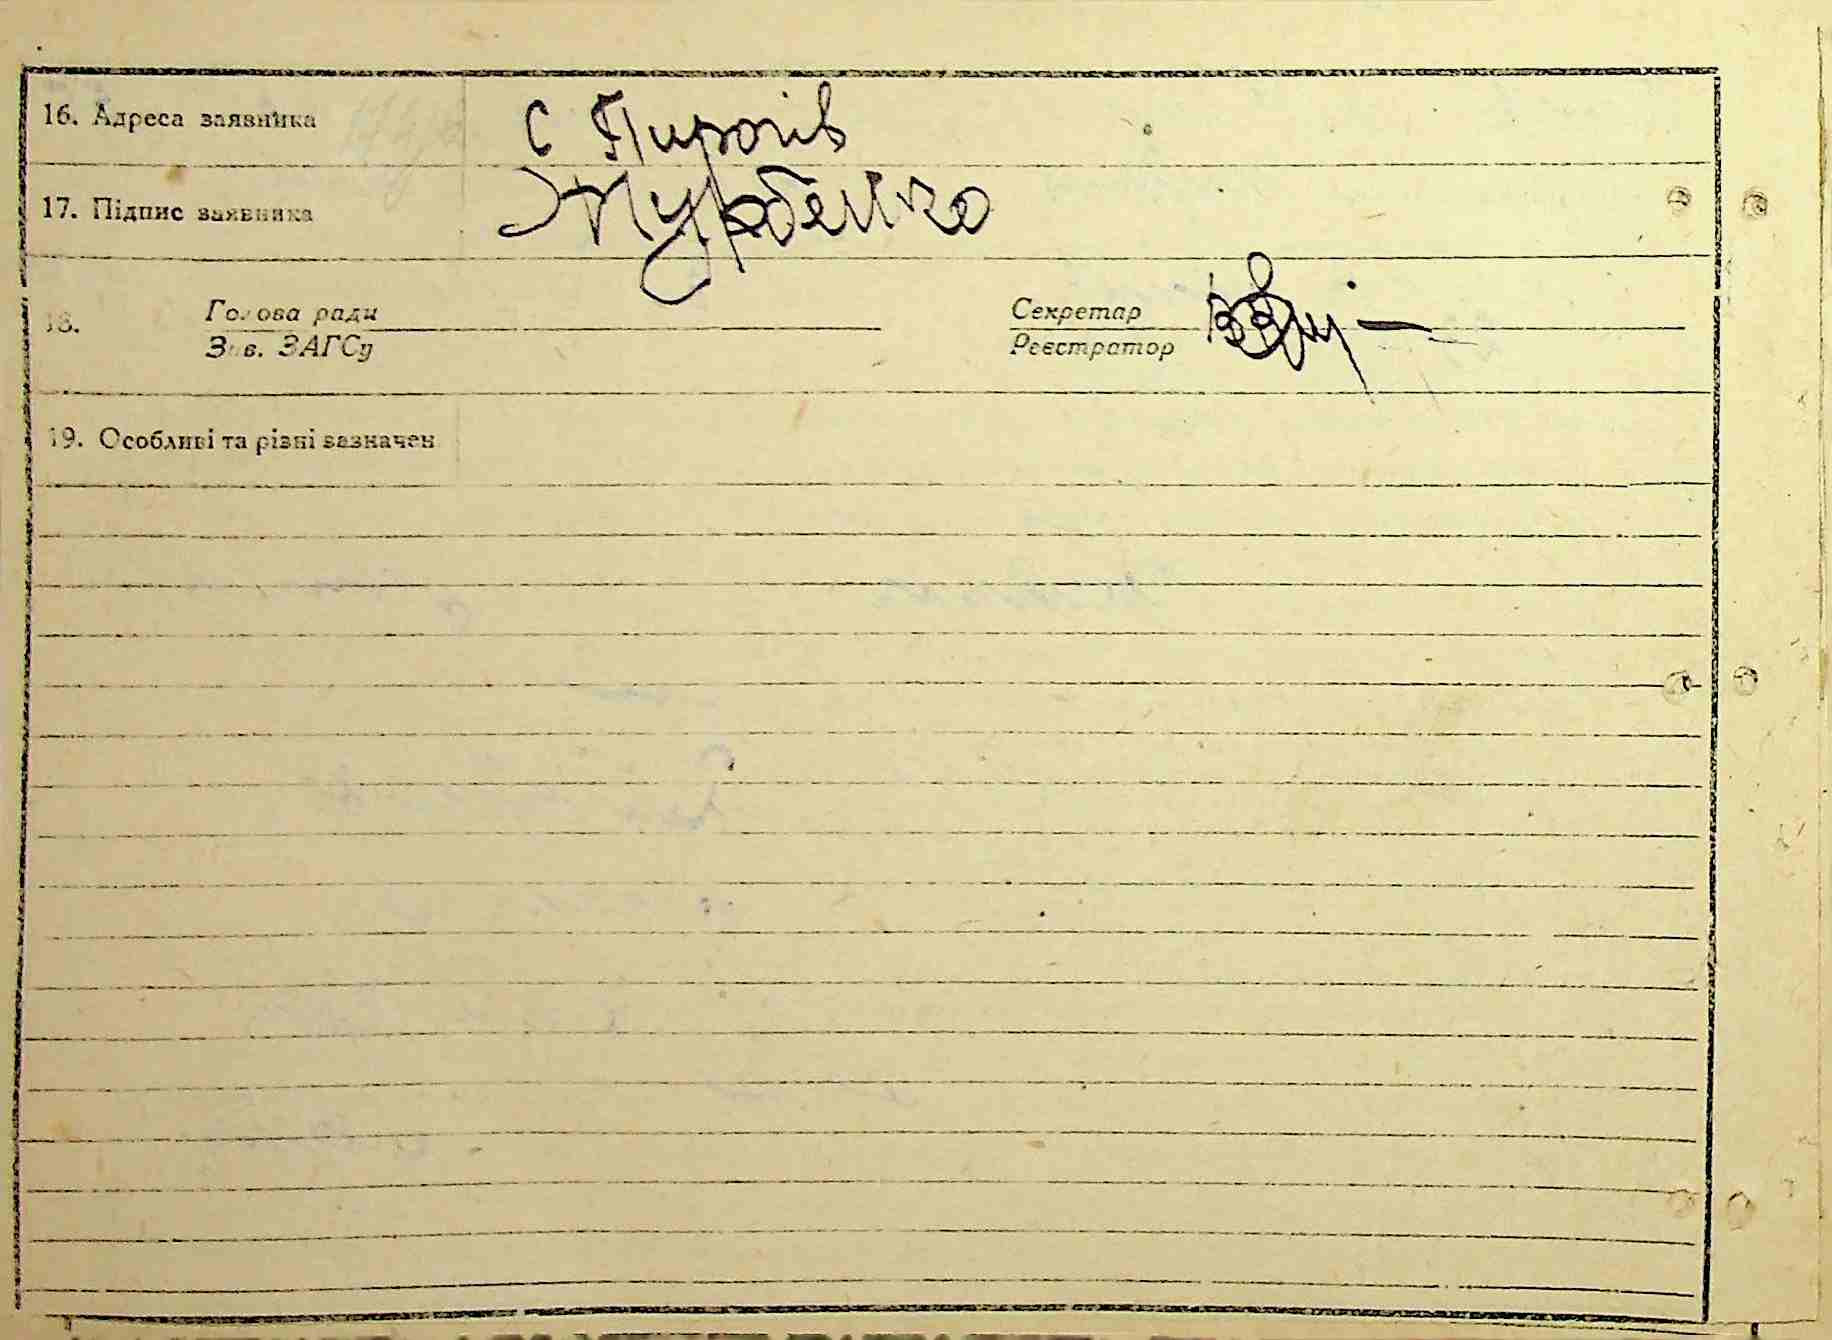 16. Адреса заявника С Пирогів
17. Підпис заявника
18. Голова ради Секретар
Зав. ЗАГСу Реєстратор
19. Особливі та різні зазначен